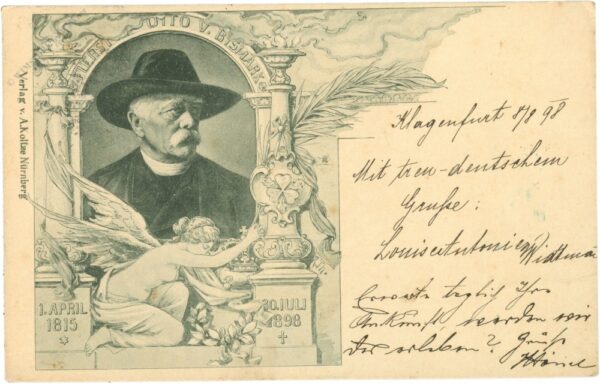 FÜRST OTTO V. BISMARCK
Verlag v. A. Koltze Nürnberg
1. APRIL
1815
30. JULI
1898
Klagenfurt 8/8 98
Mit treu-deutschem
Gruße:
Louise Antonie
Erwarte täglich Ihre
Ankunft, werden wir
das erleben? Grüße